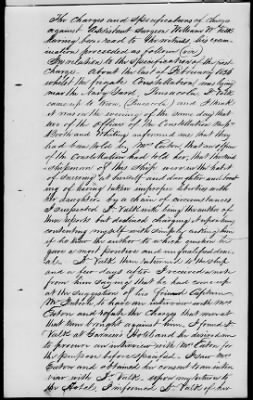 The Charges and Specifications of charges
against Assistant Surgeon William W. Valk
having been read to the witness, his exam-
ination proceeded as follows
In relation to the specification of the first
Charge. About the last of February 1838
whilst the frigate Constellation was lying
near the Navy Yard, Pensacola, Dr Valk
came up to town, (Pensacola) and I think
it was on the evening of the same day that
two of the officers of the Constellation Messrs
Booth and Whiting informed me that they
had been told by Mrs Eaton, that an officer
of the Constellation had told her, that the mid-
shipmen of the ship were in the habit
of sneering at herself and daughter and boast-
ing of having taken improper liberties with
her daughter by a chain of circumstances
I suspected Dr Valk with being the author of
this report but instead charging it upon him
contenting myself with simply asking him
if he knew the author to which question he
gave a most positive and unqualified deni-
al. Dr Valk then returned to the ship
and a few days after I received a note
from him saying that he had come up
at the suggestion of his friend Captain
to have an interview with Mrs
Eaton and refute the charges that were at
that time brought against him. I found Dr
Valk at Hotel and he desired me
to procure an interview with Mrs Eaton for
the purpose before specified. I saw Mrs
Eaton and obtained her consent to an inter-
view with Dr Valk. Upon my return to
the Hotel, I informed Dr Valk of her